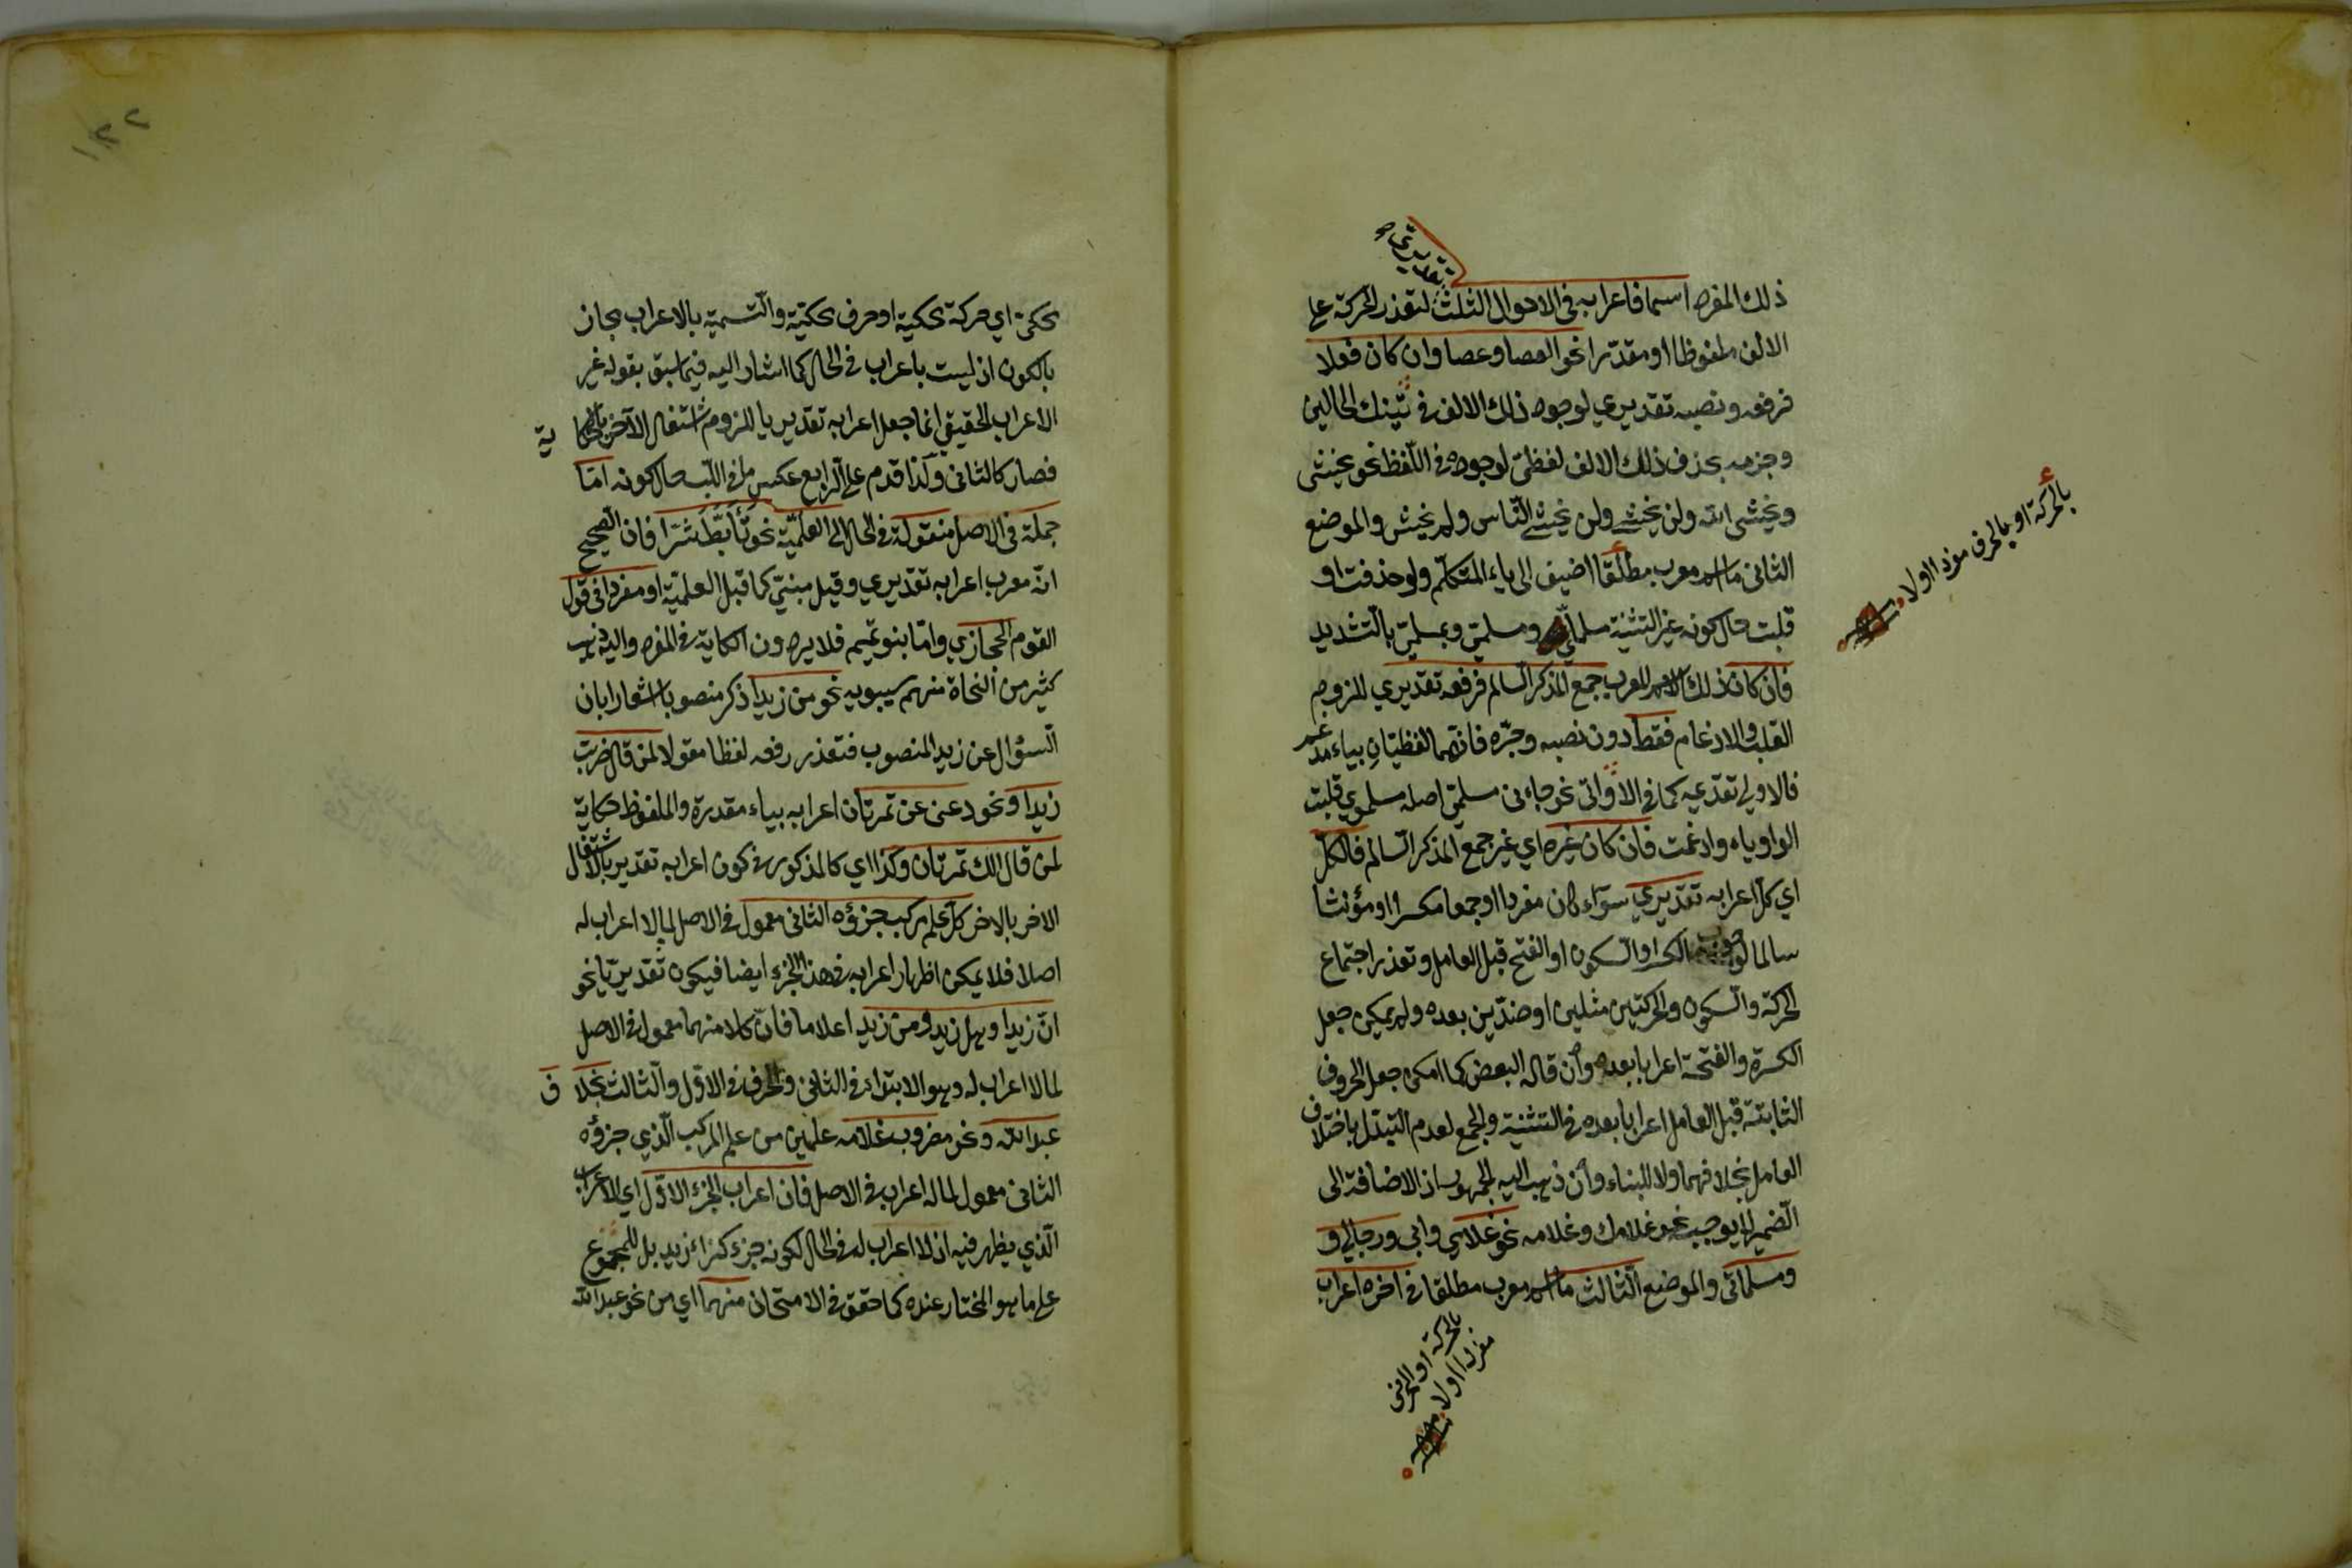 تقديري
ذلك المفرد اسما فاعرابه في الاحوال الثلث لتعذر الحركة على
الالف ملفوظا او مقدرا نحو العصا وعصا وان كان فعلا
فرفعه ونصبه تقديري لوجود ذلك الالف في تينك الحالين
وجزمه بحذف ذلك الالف لفظي لوجوده في اللفظ نحو يخشى
ويخشى الله ولن يخشى ولن يخشى الناس ولم يخش والموضع
الثاني ما اسم معرب مطلقا اضيف الى ياء المتكلم ولو حذفت او
قلبت حال كونه غير التثنية مسلماي ومسلمي وبمسلمي بالتشديد
فان كان ذلك الاسم المعرب جمع المذكر السالم فرفعه تقديري للزوم
القلب والادغام فقط دون نصبه وجره فانهما لفظيتان بياء مدغم
فالاولى تقدمه كما في الاواتي نحو جاءني مسلمي اصله مسلموي قلبت
الواو ياء وادغمت فان كان غيره اي غير جمع المذكر السالم فالكل
اي كل اعرابه تقديري سواء كان مفردا او جمعا مكسرا او مؤنثا
سالما لوجوب الكسر او السكون او الفتح قبل العامل وتعذر اجتماع
الحركة والسكون والحركتين مثلين او ضدين بعده ولم يمكن جعل
الكسرة والفتحة اعرابا بعده وان قاله البعض كما امكن جعل الحروف
الثابتة قبل العامل اعرابا بعده في التثنية والجمع لعدم التبدل باختلاف
العامل بخلافهما ولا للبناء وان ذهب اليه الجمهور اذ الاضافة الى
الضمير لا يوجب نحو غلامك وغلامه نحو غلامي وابي ورجالي و
ومسلماتي والموضع الثالث ما اسم معرب مطلقا في اخره اعراب
بالحركة او بالحرف مفردا اولا
بالحركة او الحرف
مفردا اولا
١٢٢
محكي اي حركة محكية او حرف محكية والتسمية بالاعراب مجاز
بالكون اذ ليست باعراب في الحال كما اشار اليه فيما سبق بقوله غير
الاعراب الحقيقي انما جعل اعرابه تقديريا للزوم اشتغال الآخر بالحكاية
فصار كالثاني ولذا قدم على الرابع عكس ما في اللب حال كونه اما
جملة في الاصل منقولة في الحال الى العلمية نحو تأبط شرا فان الصحيح
انه معرب اعرابه تقديري وقيل مبني كما قبل العلمية او مفردا في قول
القوم الحجازي واما بنو تميم فلا يرون الحكاية في المفرد واليه ذهب
كثير من النحاة منهم سيبويه نحو من زيدا ذكر منصوبا اشعارا بان
السؤال عن زيد المنصوب فتعذر رفعه لفظا مقولا لمن قال ضربت
زيدا ونحو دعني عن تمرتان اعرابه بياء مقدرة والملفوظ حكاية
لمن قال الك تمرتان وكذا اي كالمذكور في كون اعرابه تقديريا لاشتغال
الاخر بالاخر كل علم مركب جزؤه الثاني معمول في الاصل لما لا اعراب له
اصلا فلا يمكن اظهار اعرابه في هذا الجزء ايضا فيكون تقديريا نحو
ان زيدا وهل زيد ومن زيد اعلاما فان كلا منهما معمول في الاصل
لما لا اعراب له وهو الابتداء في الثاني والحرف في الاول والثالث بخلاف
عبد الله ونحو مضروب غلامه علمين من علم المركب الذي جزؤه
الثاني معمول لما له اعراب في الاصل فان اعراب الجزء الاول اي الاعراب
الذي يظهر فيه اذ لا اعراب له في الحال لكونه جزء كزاء زيد بل للمجموع
على ما هو المختار عنده كما حقق في الامتحان منهما اي من نحو عبد الله